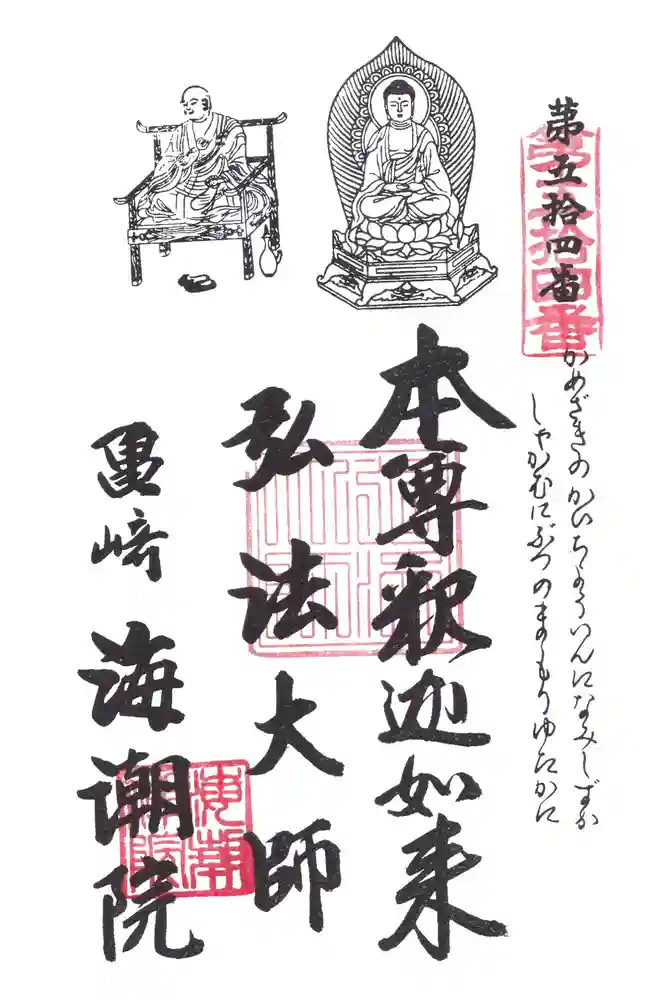 第五拾四番
第五拾四番
かめざきのかいちょういんになみしずか
しゃかむにぶつのまもりゆたかに
本尊釈迦如来
弘法大師
亀崎 海潮院
海潮院